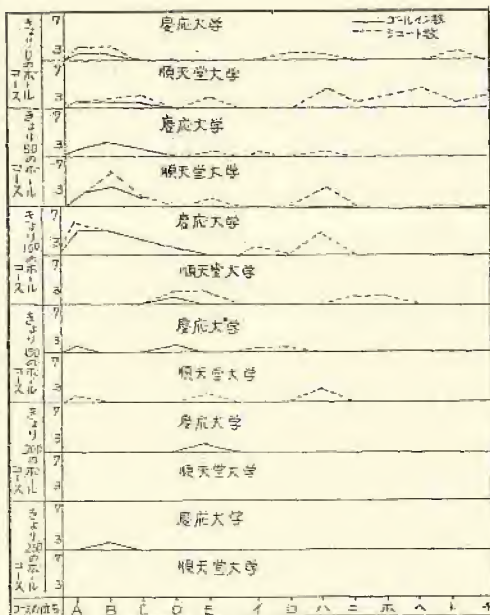 ゴールイン数
シュート数
きょり0のボールコース
7
3
慶応大学
7
3
順天堂大学
きょり50のボールコース
7
3
慶応大学
7
3
順天堂大学
きょり100のボールコース
7
3
慶応大学
7
3
順天堂大学
きょり150のボールコース
7
3
慶応大学
7
3
順天堂大学
きょり200のボールコース
7
3
慶応大学
7
3
順天堂大学
きょり250のボールコース
7
3
慶応大学
7
3
順天堂大学
A B C D E イ ロ ハ ニ ホ ヘ ト